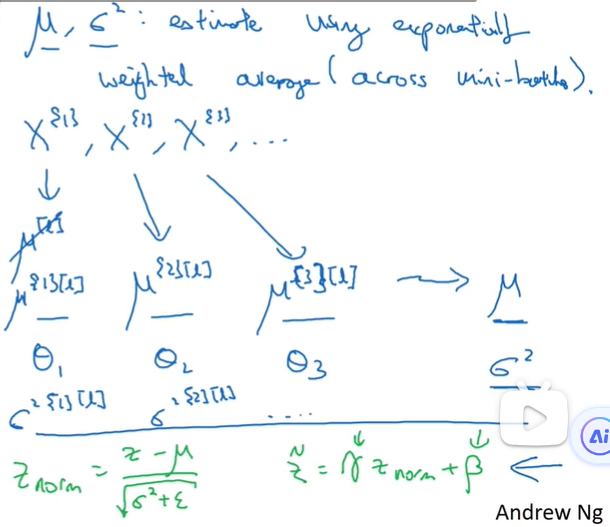 μ, σ²: estimate using exponentially
weighted average (across mini-batches).
X^{1}, X^{2}, X^{3}, ...
μ^[l]
μ^{1}[l] μ^{2}[l] μ^{3}[l] → μ
θ₁ θ₂ θ₃ σ²
σ²^{1}[l] σ²^{2}[l] ....
z_norm = (z - μ) / √(σ² + ε) z̃ = γ z_norm + β ←
Ai
Andrew Ng